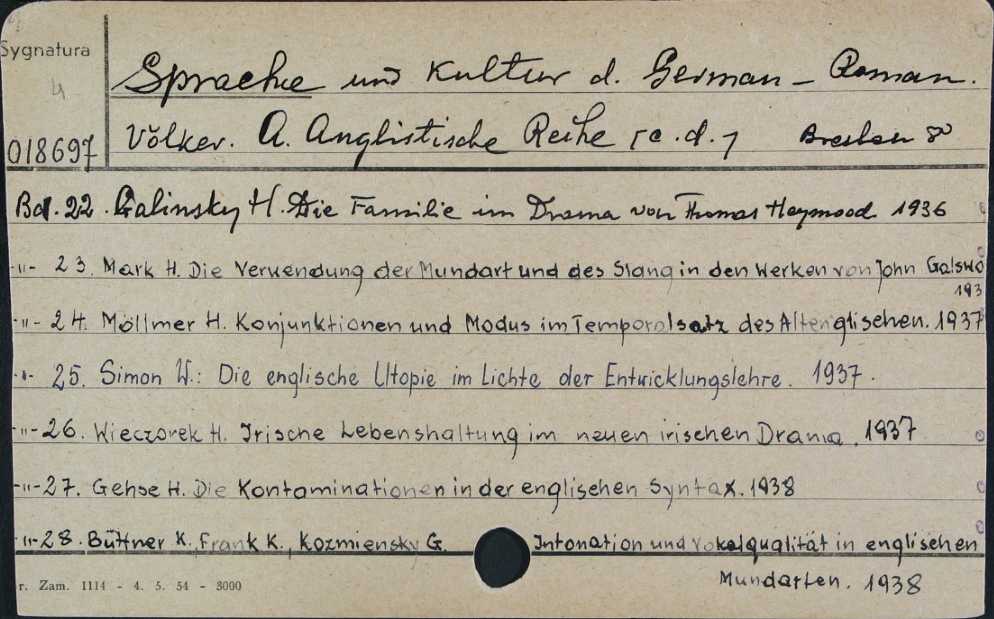 Sygnatura
4
Sprache und Kultur d. German – Roman.
018697
Völker. A. Anglistische Reihe [c.d.] Breslau 8°
Bd. 22. Galinsky H. Die Familie im Drama von Thomas Heywood 1936
-"- 23. Mark H. Die Verwendung der Mundart und des Slang in den Werken von John Galswo
193
-"- 24. Möllmer H. Konjunktionen und Modus im Temporalsatz des Altenglischen. 1937
-"- 25. Simon W.: Die englische Utopie im Lichte der Entwicklungslehre. 1937.
-"- 26. Wieczorek H. Irische Lebenshaltung im neuen irischen Drama. 1937
-"- 27. Gehse H. Die Kontaminationen in der englischen Syntax. 1938
-"- 28. Büttner K., Frank K., Kozmiensky G. Intonation und Vokalqualität in englischen
Mundarten. 1938
r. Zam. 1114 - 4. 5. 54 - 3000